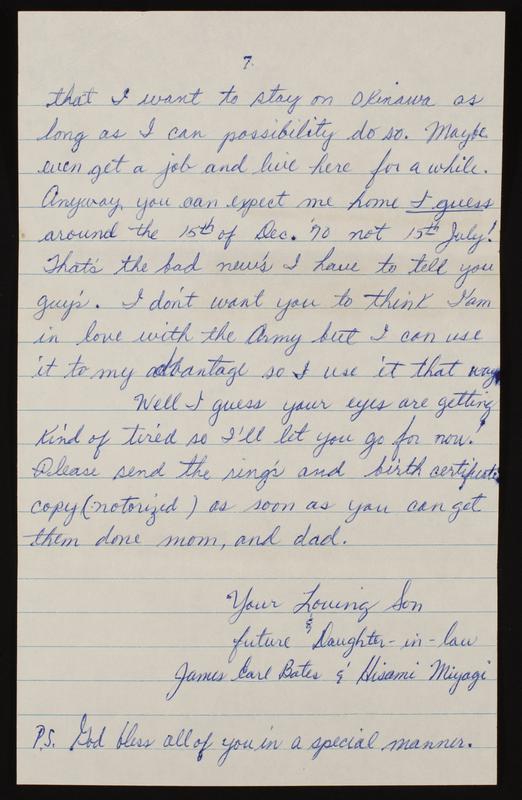 7.
that I want to stay on Okinawa as
long as I can possibility do so. Maybe
even get a job and live here for a while.
Anyway you can expect me home I guess
around the 15th of Dec. '70 not 15th July!
That's the bad new's I have to tell you
guy's. I don't want you to think I'am
in love with the Army but I can use
it to my advantage so I use it that way.
Well I guess your eyes are getting
kind of tired so I'll let you go for now!
Please send the ring's and birth certificate
copy (notorized) as soon as you can get
them done mom, and dad.
Your Loving Son
&
future Daughter-in-law
James Carl Bates & Hisami Miyagi
P.S. God bless all of you in a special manner.